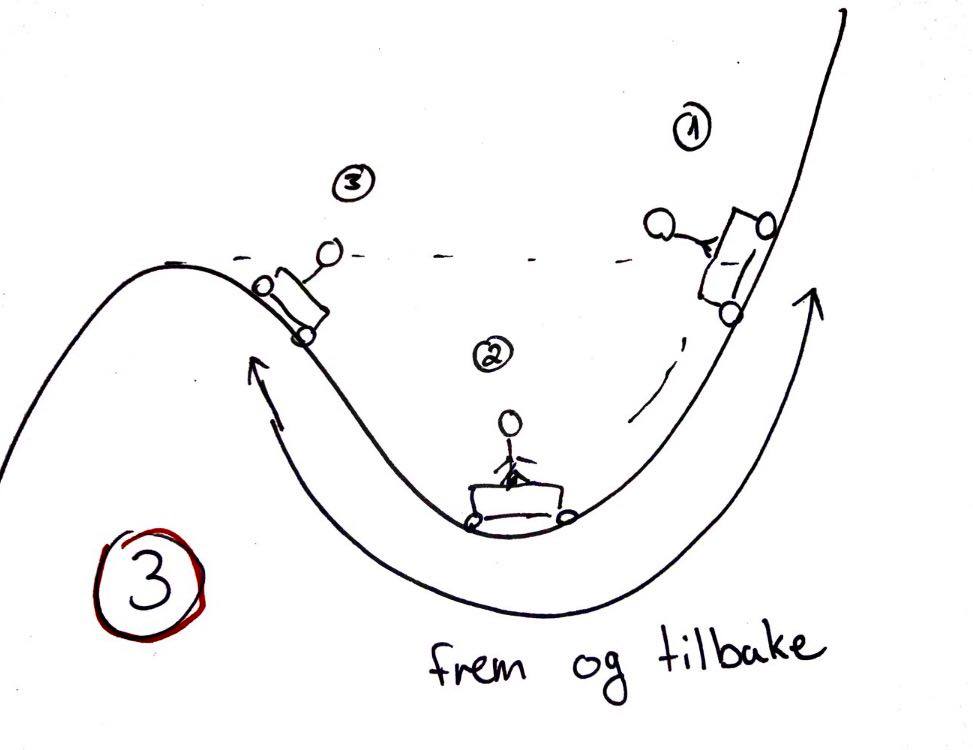 1
3
2
3
frem og tilbake